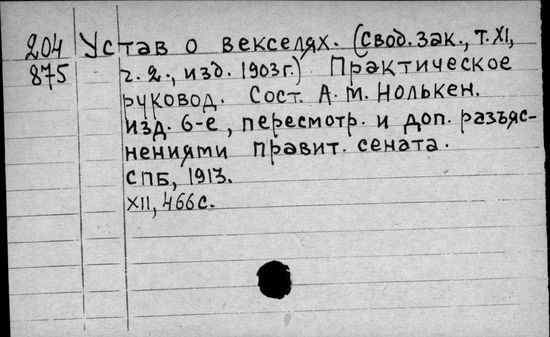 204 Устав о векселях. (Свод. зак., т. XI,
875 ч. 2., изд. 1903 г.) Практическое
руковод. Сост. А. М. Нолькен.
изд. 6-е, пересмотр. и доп. разъяс-
нениями правит. сената.
СПБ, 1913.
XII, 466 с.